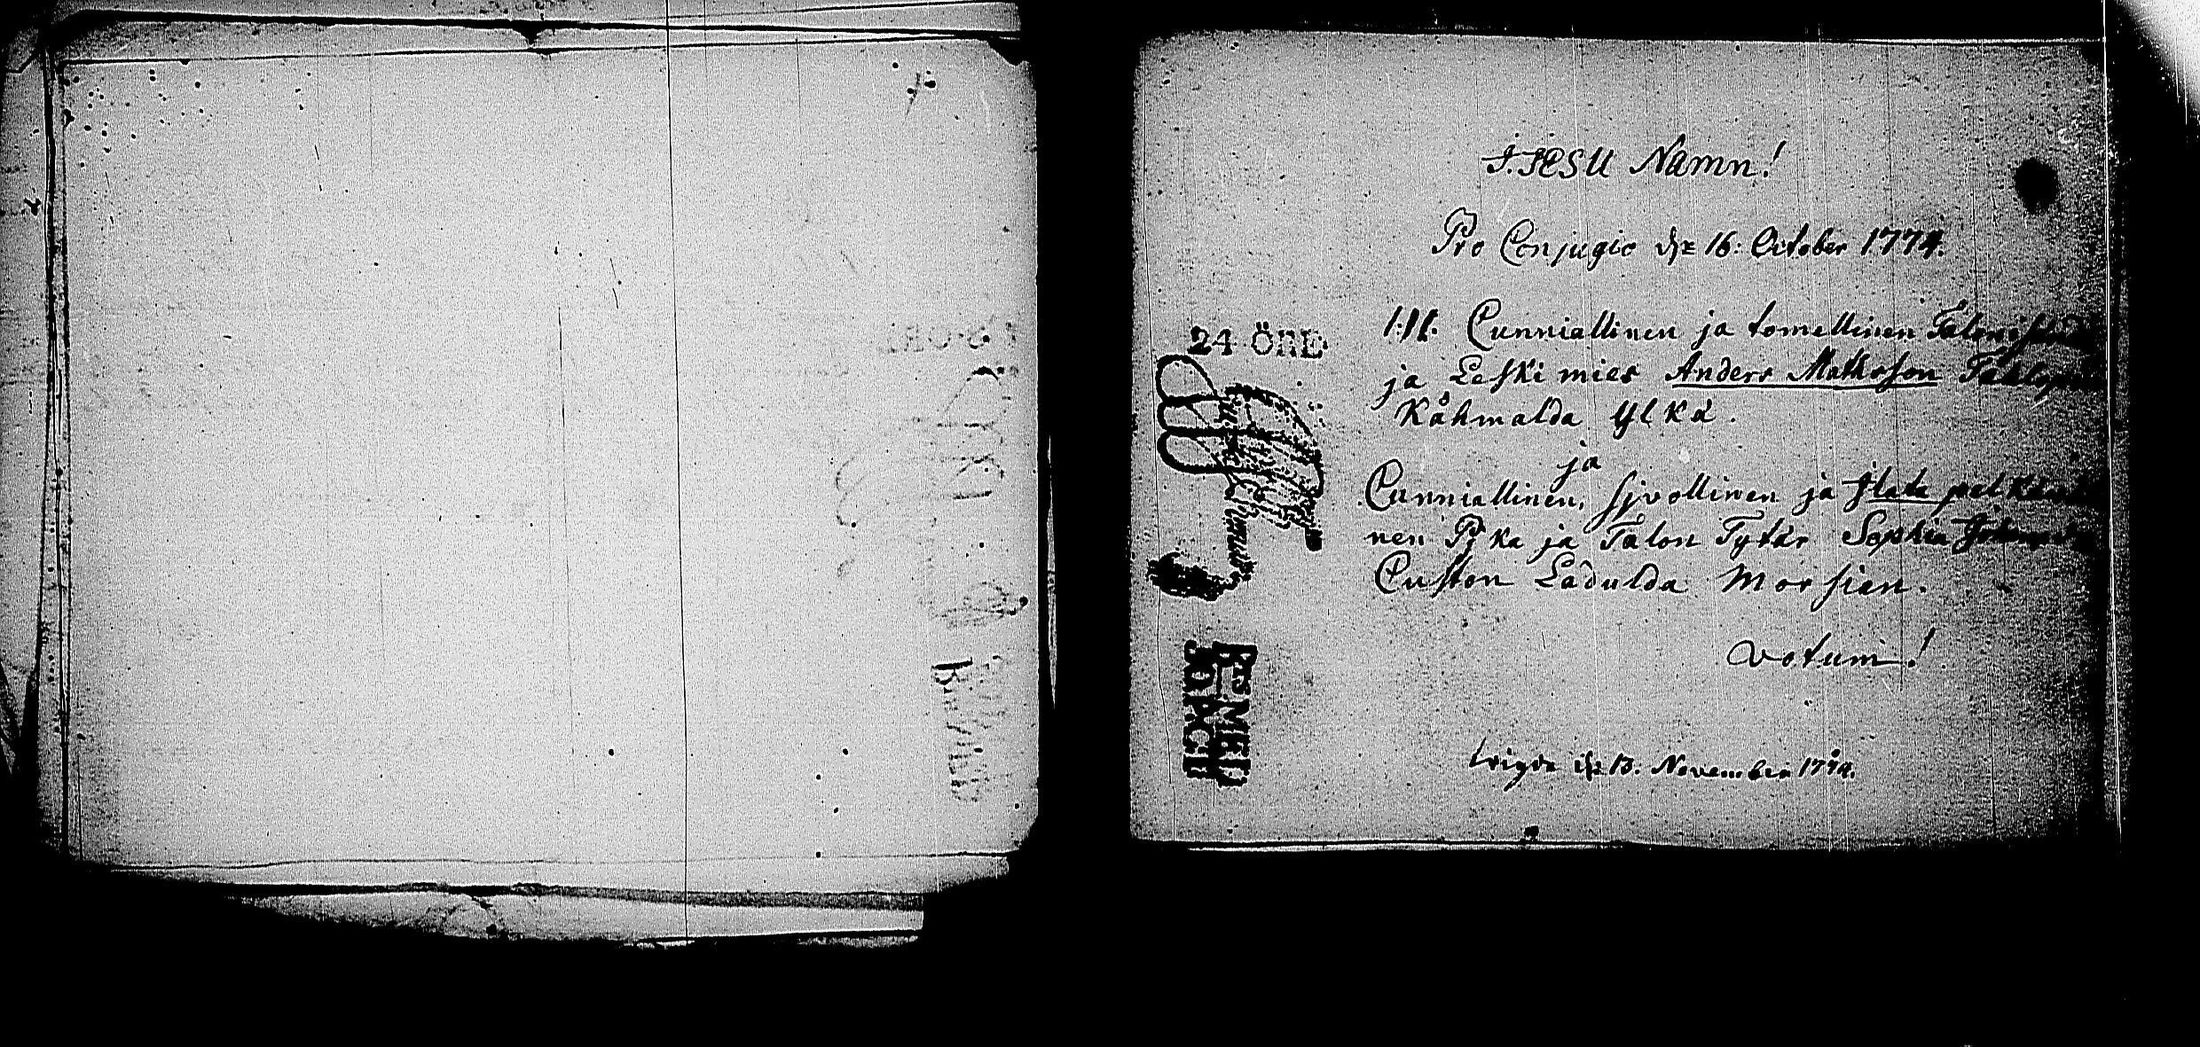 I. JESU Namn!
Pro Conjugio d. 16: October 1774.
24 ÖRE
1:11. Cunniallinen ja tomellinen
ja Leski mies Anders Mathsson
Kåhmalda ylkä.
ja
Cunniallinen, sjvollinen ja
nen Pjka ja Talon Tytär Sophia
Custon Ladulda Morsien.
votum!
wigde d. 13. November 1774.